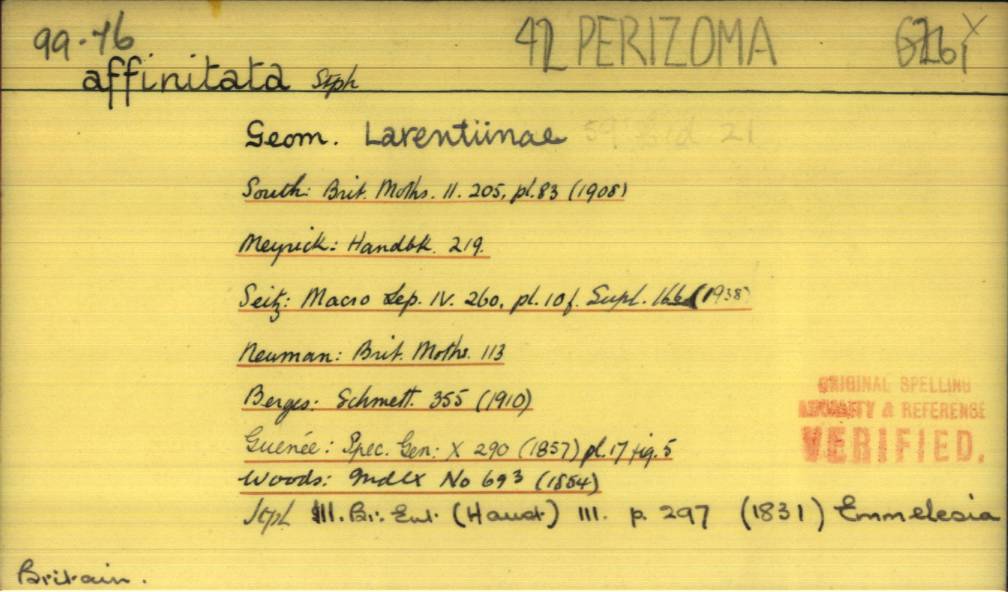 99.46 42 PERIZOMA
affinitata Stph
Geom. Larentiinae
South: Brit. Moths. II. 205, pl. 83 (1908)
Meyrick: Handbk. 219.
Seitz: Macro Lep. IV. 260, pl. 10f. Supl. 166 (1938)
Neuman: Brit. Moths. 113
Berges: Schmett. 355 (1910)
Guenée: Spec. Gen: X 290 (1857) pl. 17 fig. 5
Woods: Index No 693 (1854)
Stph Ill. Br. Ent. (Haust.) III. p. 297 (1831) Emmelesia
ORIGINAL SPELLING
& REFERENCE
VERIFIED.
Britain.